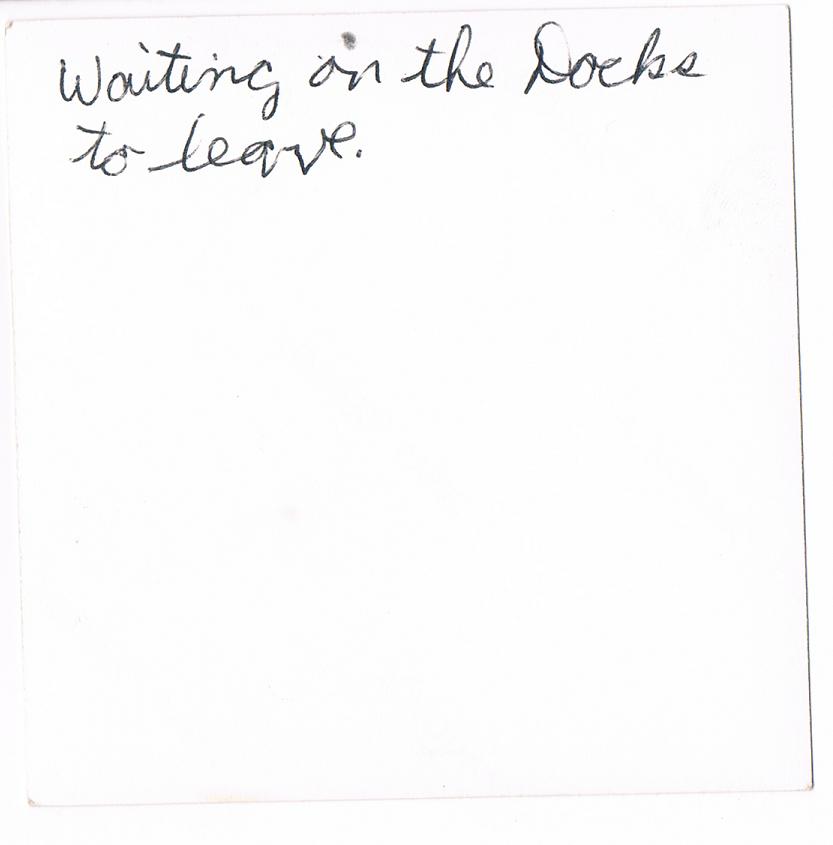 Waiting on the Docks
to leave.